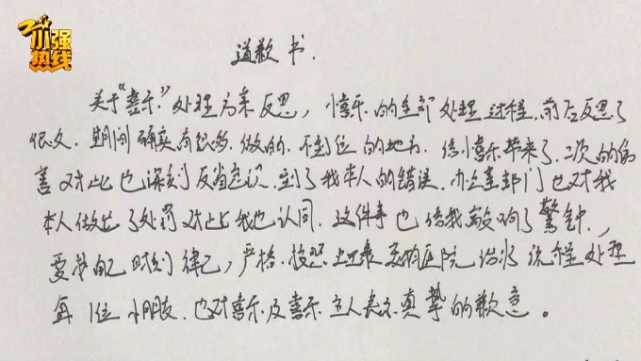 小强热线
道歉书.
关于“喜乐”处理方案反思，喜乐的全部处理过程.前后反思了
很久.期间确实有很多.做的.不到位的地方.给小喜乐带来了.二次的伤
害对此也深刻反省意识.到了我本人的错误.办公室部门也对我
本人做出了处罚对此我也认同.这件事也给我敲响了警钟.，
要求自己时刻律己，严格.按照.医院流程处理
每1位小朋友.也对喜乐及喜乐主人表示真挚的歉意。